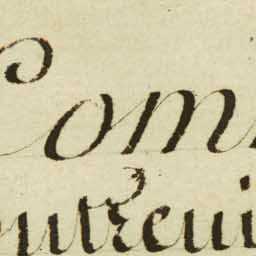 Com
utreui